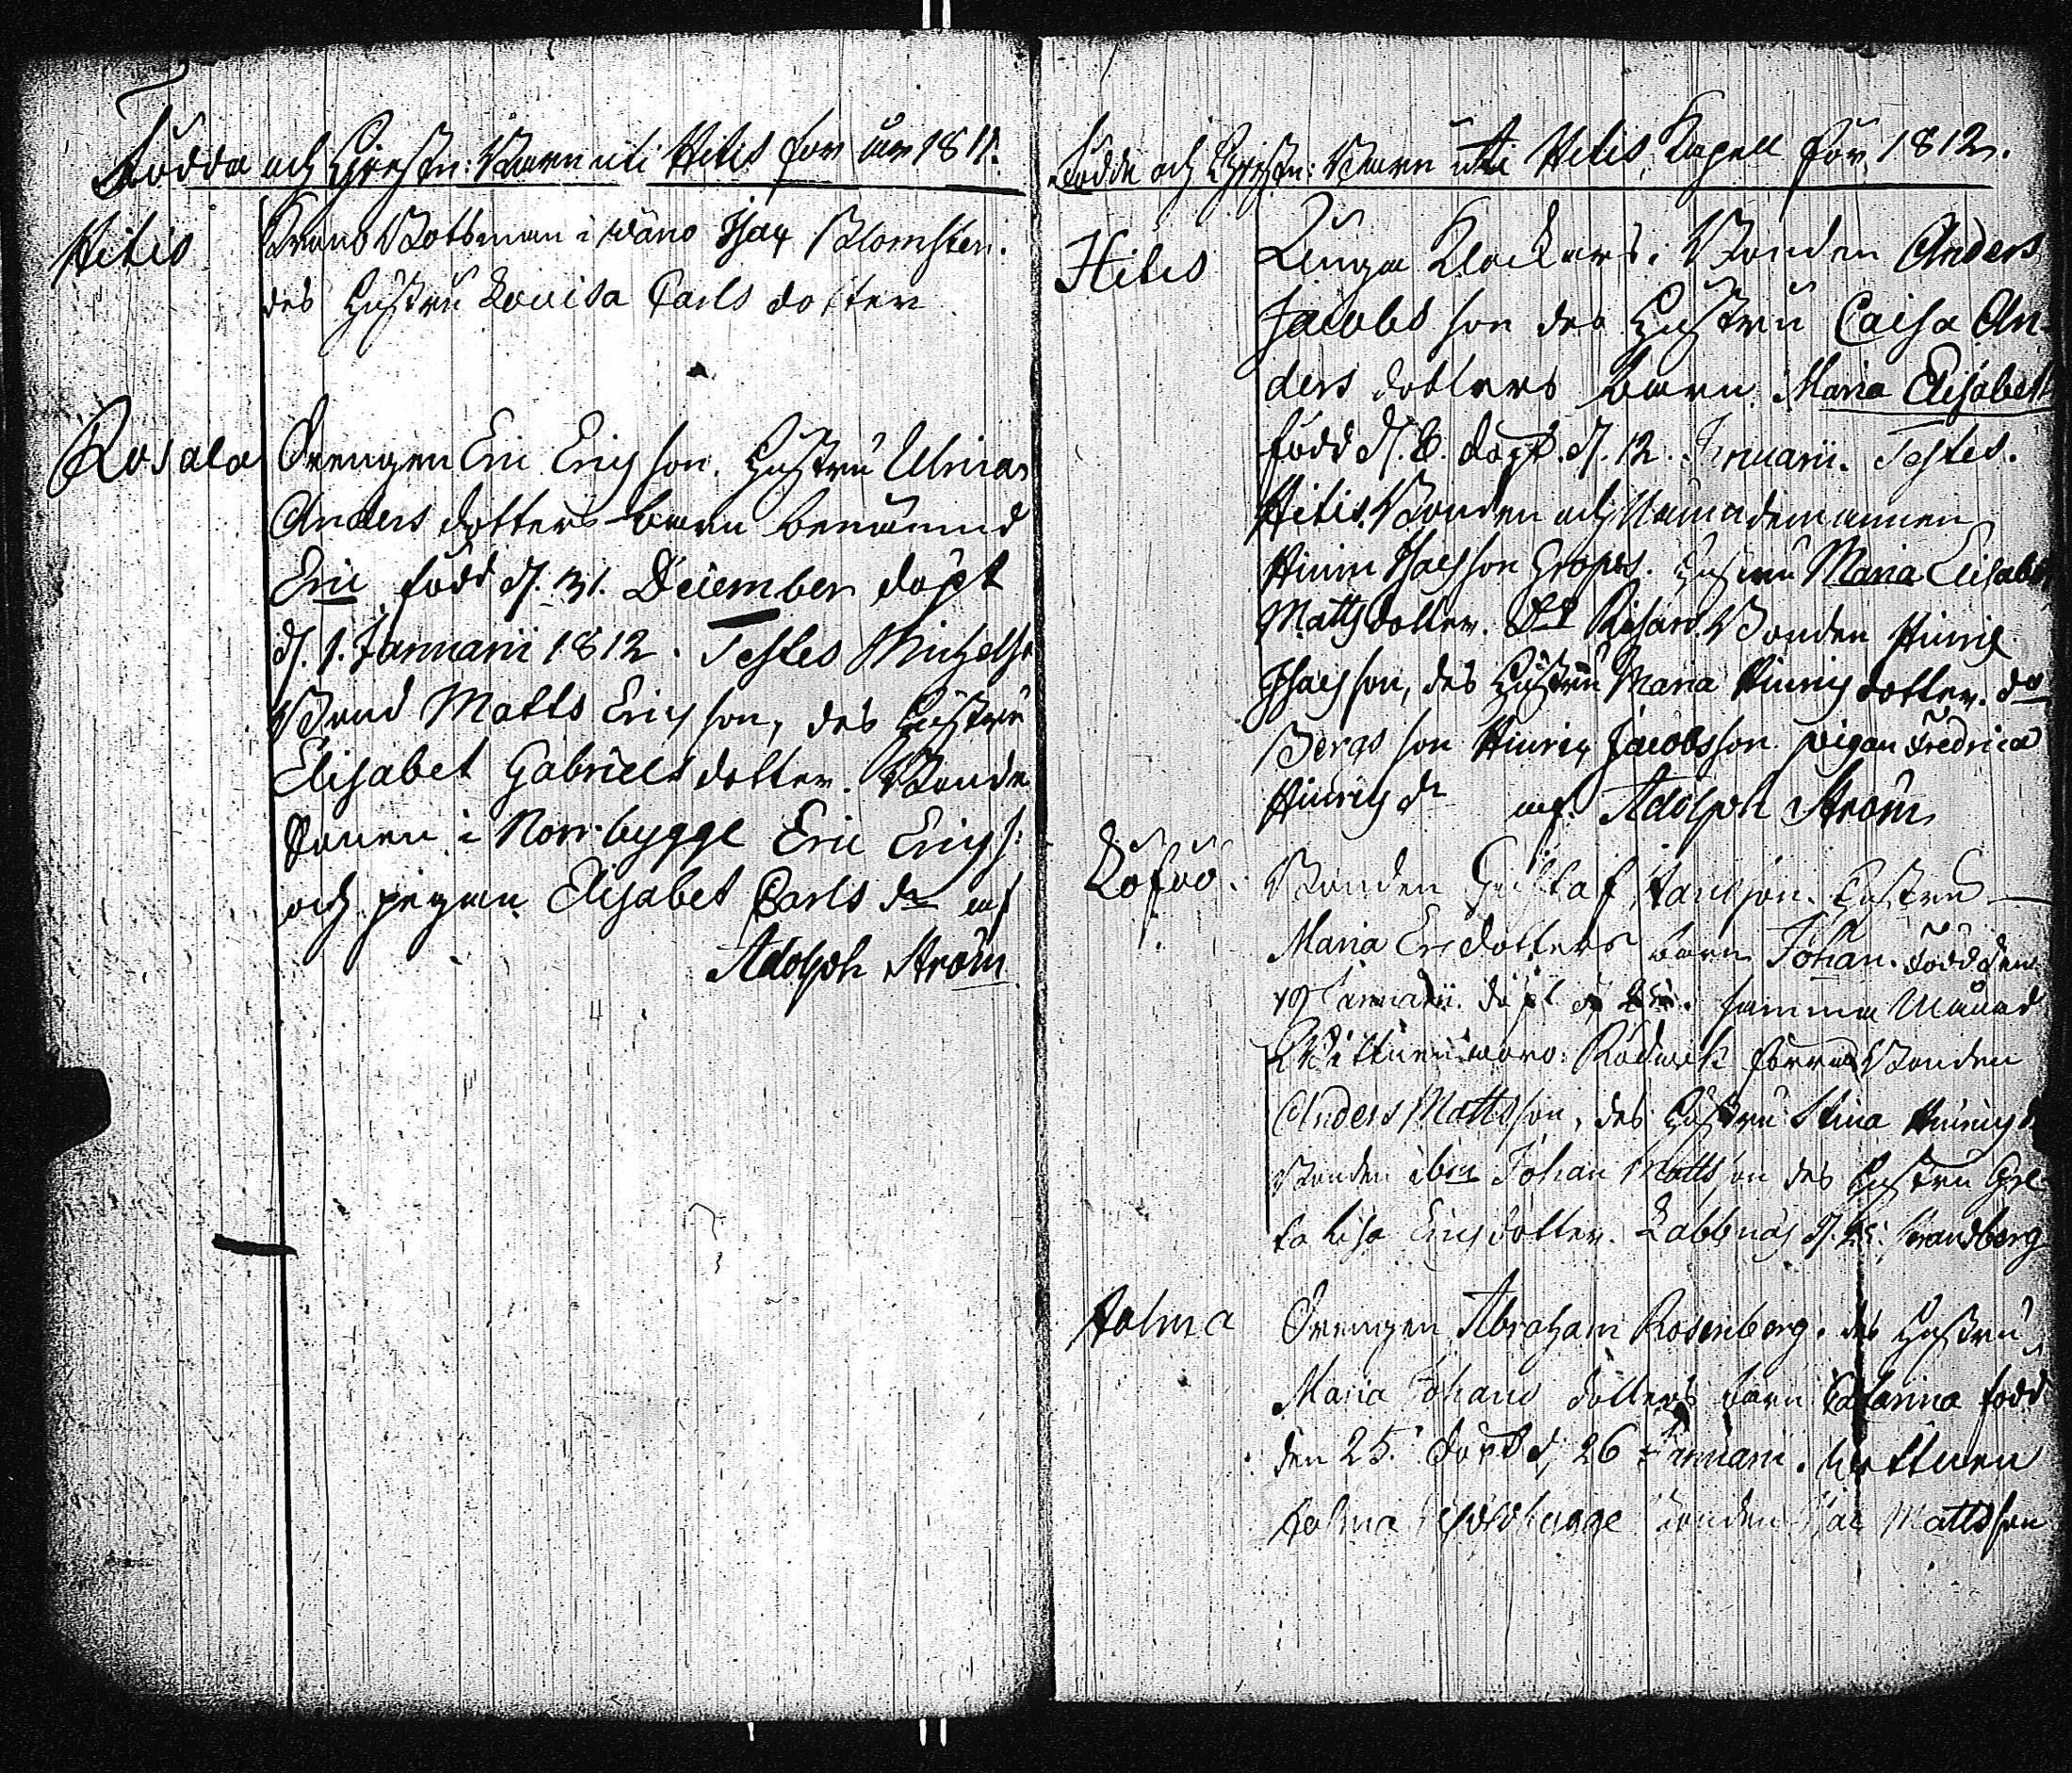 Födda och Christn: Barn uti Hitis för år 1811.
Hitis
Krono Botsman i Wäno Isac Blomster.
des Hustru Lovisa Carls dotter
Rosala
Drengen Eric Ericsson. Hustru Ulrica
Anders dotters barn benämnd
Eric född d. 31. December döpt
d. 1. Januarii 1812. Testes
Bond Matts Ericsson, des Hustru
Elisabet Gabriels dotter. Bonde
Sonen i Norrbygge Eric Erics s:
och pigan Elisabet Carls dr af
Adolph Ström
Födde och Christn: Barn uti Hitis Kapell för 1812.
Hitis
Unga Klockars. Bonden Anders
Jacobs son des Hustru Caisa An-
ders dotters barn Maria Elisabeth
född d. 6. döpt. d. 12. Januarii. Testes.
Hitis. Bonden och Nämndemannen
Hinric Isacsson. Hustru Maria Elisabet
Matts dotter. Bonden Hinric
Isacsson, des Hustru Maria Hinrics dotter. do
Bergs son Hinric Jacobsson pigan Fredrica
Hinrics dr af Adolph Ström
Löfvö.
Bonden Gustaf Hustru
Maria Ers dotters barn Johan. född den
19 Januarii. döpt d samma Månad
Wittnen woro: Rödwik förra Bonden
Anders Mattsson, des Hustru Stina Hinrics
Bonden ibm Johan Mattson des Hustru Gre-
ta Lisa Erics dotter. Labbnäs Strandberg
Holma
Drengen Abraham Rosenberg. des Hustru
Maria Johans dotters barn Catarina född
den 25. döpt d. 26 Januarii. Wittnen
Holma bonden Isac Mattsson